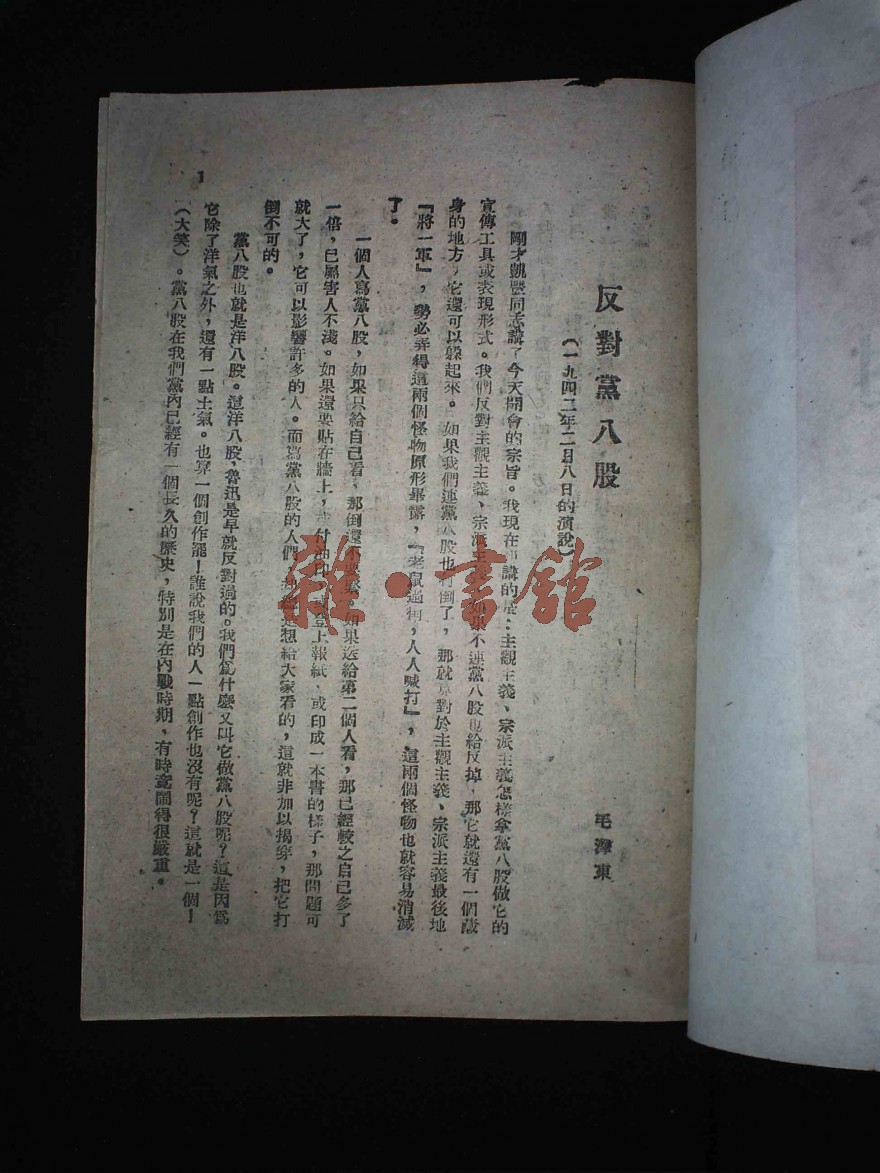 反對黨八股
(一九四二年二月八日的演說)
毛澤東
剛才凱豐同志講了今天開會的宗旨。我現在講的是：主觀主義、宗派主義怎樣拿黨八股做它的
宣傳工具或表現形式。我們反對主觀主義、宗派主義，如果不連黨八股也給反掉，那它就還有一個藏
身的地方，它還可以躲起來。如果我們連黨八股也打倒了，那就算對於主觀主義、宗派主義最後地
『將一軍』，勢必弄得這兩個怪物原形畢露，『老鼠過街，人人喊打』，這兩個怪物也就容易消滅
了。
一個人寫黨八股，如果只給自己看，那倒還不要緊。如果送給第二個人看，那已經較之自己多了
一倍，已屬害人不淺。如果還要貼在牆上，付油印，或登上報紙，或印成一本書的樣子，那問題可
就大了，它可以影響許多的人。而寫黨八股的人們，却總是想給大家看的，這就非加以揭穿，把它打
倒不可的。
黨八股也就是洋八股。這洋八股，魯迅是早就反對過的。我們爲什麼又叫它做黨八股呢？這是因爲
它除了洋氣之外，還有一點土氣。也算一個創作罷！誰說我們的人一點創作也沒有呢？這就是一個！
(大笑)。黨八股在我們黨內已經有一個長久的歷史，特別是在內戰時期，有時竟鬧得很嚴重。
1
雜·書館